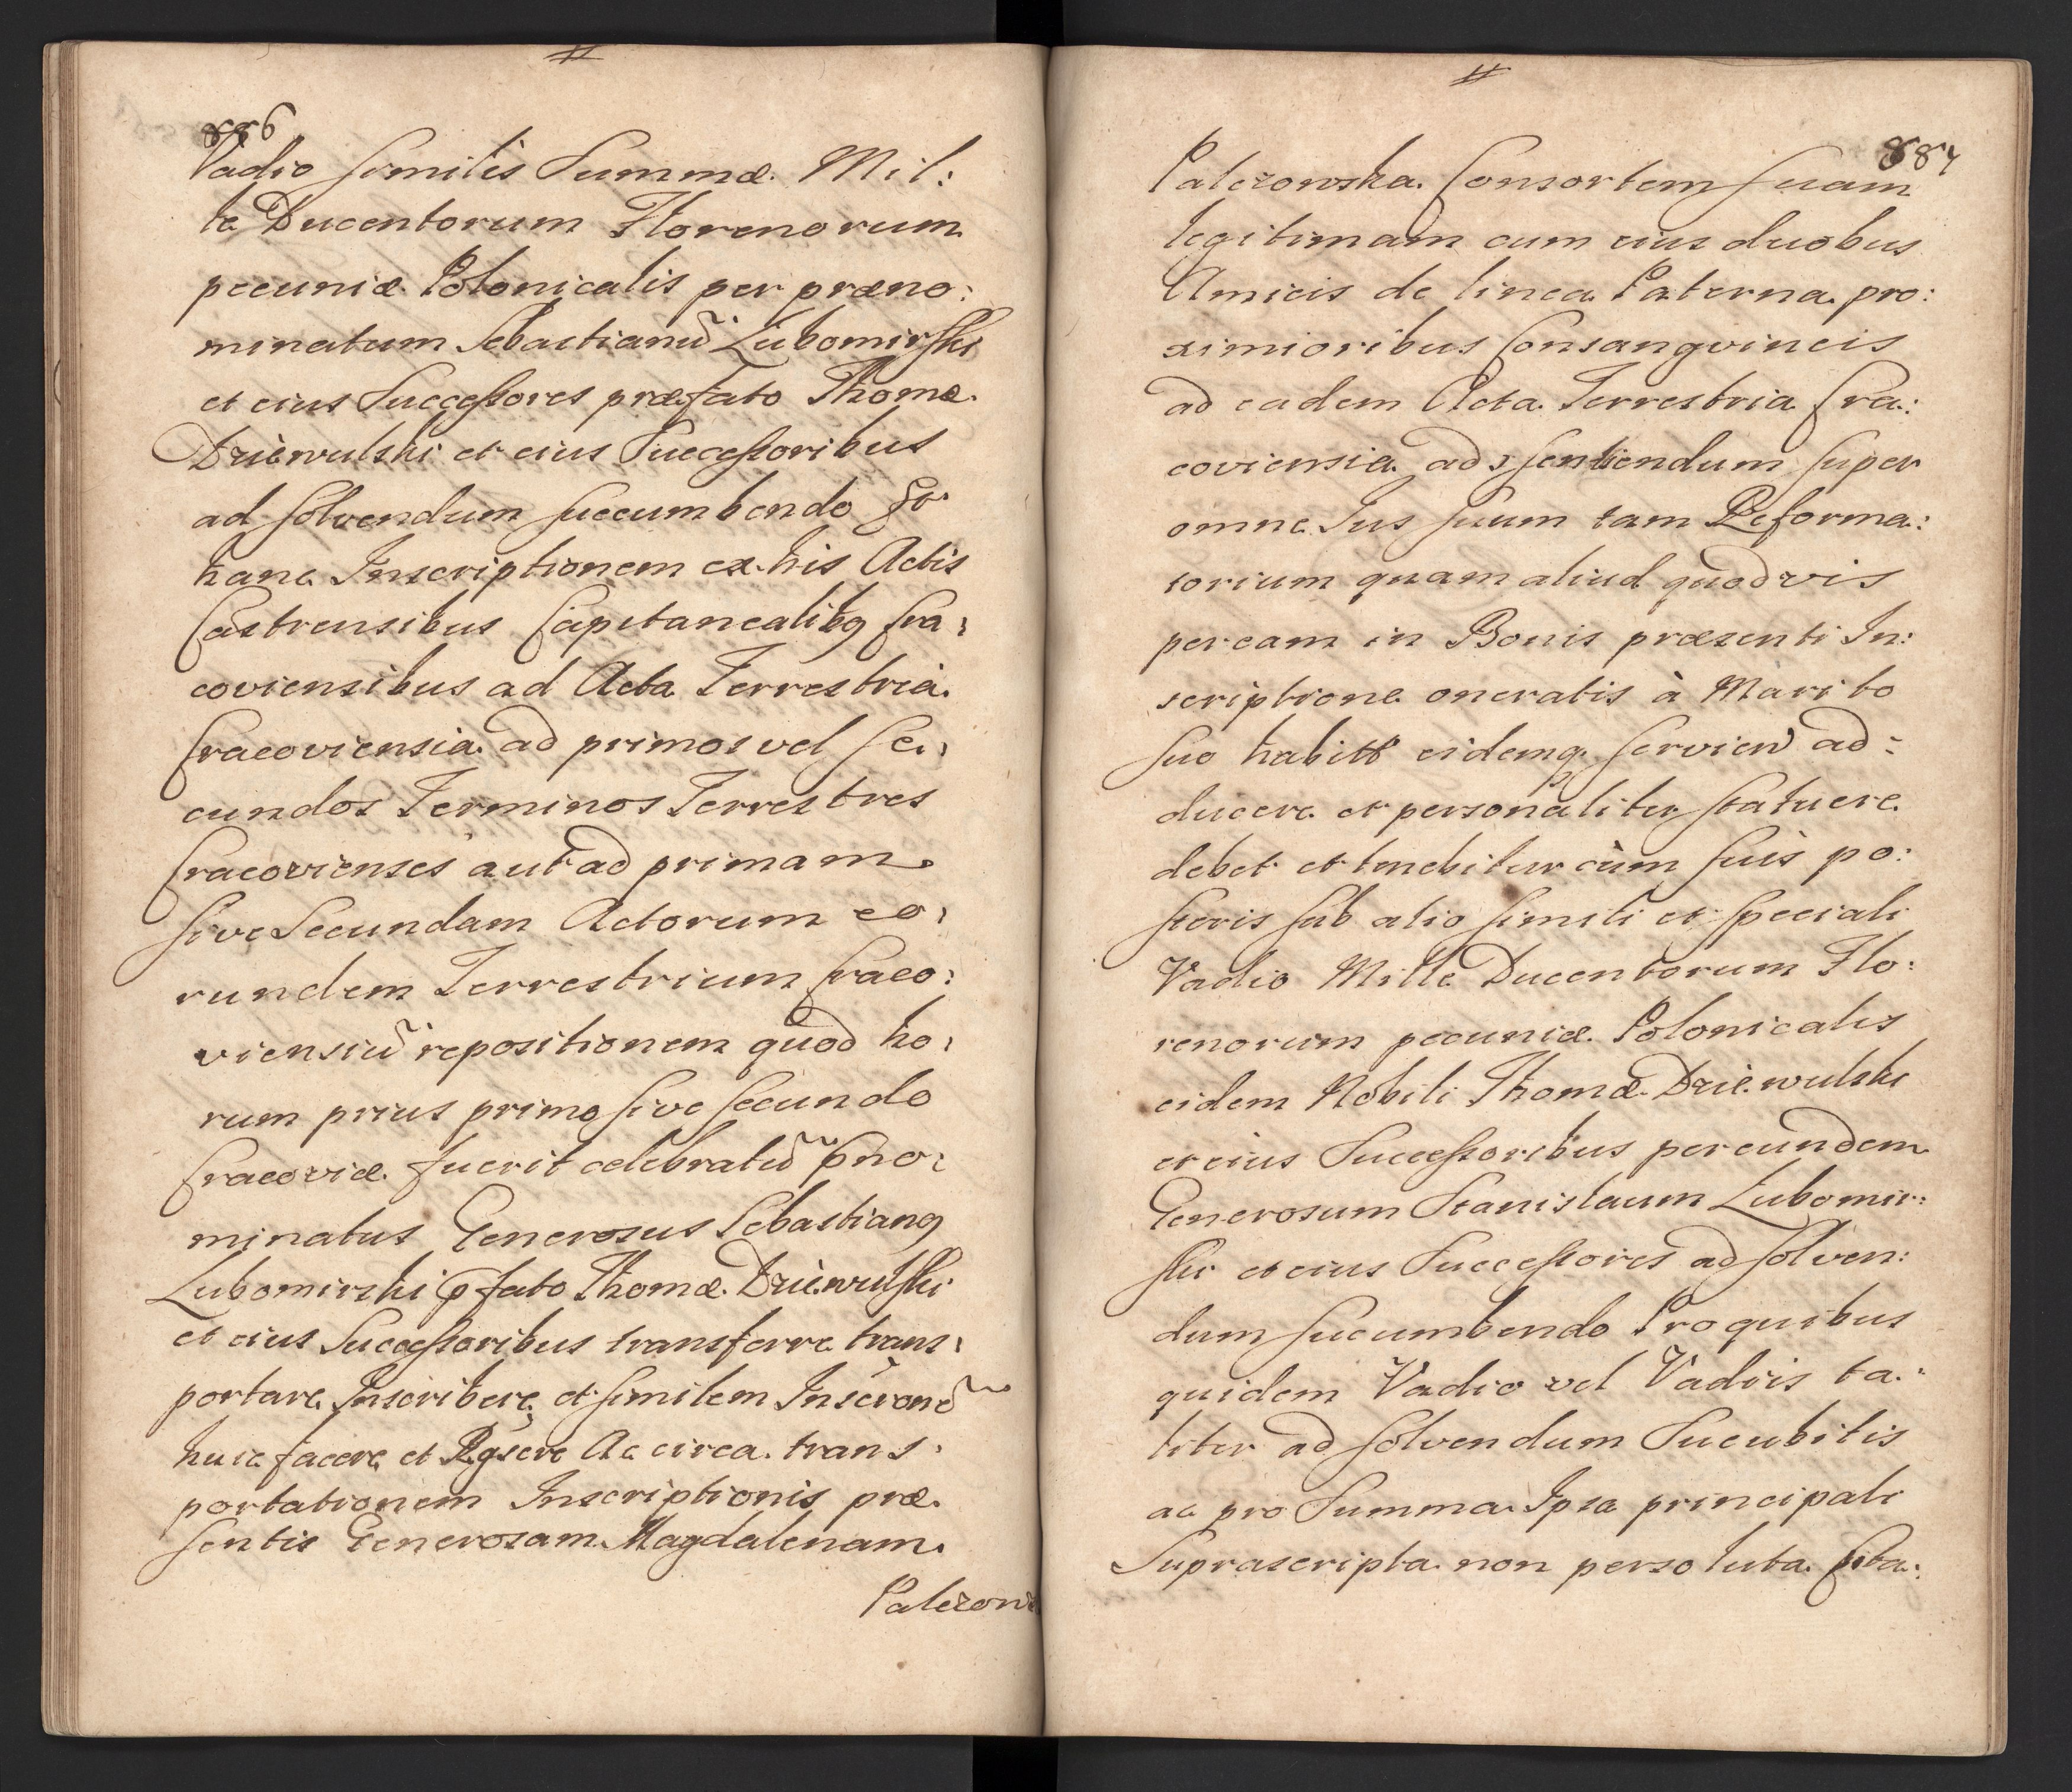 886
Vadio similis Summæ Mil:
le Ducentorum Florenorum
pecuniæ Polonicalis per præno:
minatum Sebastianũ Lubomirski
et eius Successores præfato Thomæ
Dziewulski et eius Successoribus
ad solvendum succumbendo Et
hanc Inscriptionem ex his Actis
Castrensibus Capitanealibq Cra:
coviensibus ad Acta Terrestria
Cracoviensia ad primos vel se:
cundos Terminos Terrestres
Cracovienses aut ad primam
sive Secundam Actorum eo:
rundem Terrestrium Craco:
viensiũ repositionem quod ho:
rum prius primo sive secundo
Cracoviæ fuerit celebratũ pno:
minatus Generosus Sebastianq
Lubomirski pfato Thomæ Dziewulski
et eius Successoribus transferre trans:
portare Inscribere et similem Inscronẽ
huic facere et Rgscere Ac circa trans:
portationem Inscriptionis præ
sentis Generosam Magdalenam
Palczows
887
Palczowska Consortem suam
legitimam cum eius duobus
Amicis de linea Paterna pro:
ximioribus Consangvineis
ad eadem Acta Terrestria Cra:
coviensia ad sentiendum super
omne Jus suum tam Reforma:
torium quam aliud quodvis
per eam in Bonis præsenti In:
scriptione oneratis à Marito
suo habitt eidemq servien ad:
ducere et personaliter statuere
debet et tenebitur cùm suis po:
steris sub alio simili et speciali
Vadio Mille Ducentorum Flo:
renorum pecuniæ Polonicalis
eidem Nobili Thomæ Dziewulski
et eius Successoribus per eundem
Generosum Stanislaum Lubomir:
ski et eius Successores ad solven:
dum sucumbendo Pro quibus
quidem Vadio vel Vadiis ta:
liter ad solvendum Sucubitis
ac pro Summa Ipsa principali
Suprascripta non persoluta Cita: